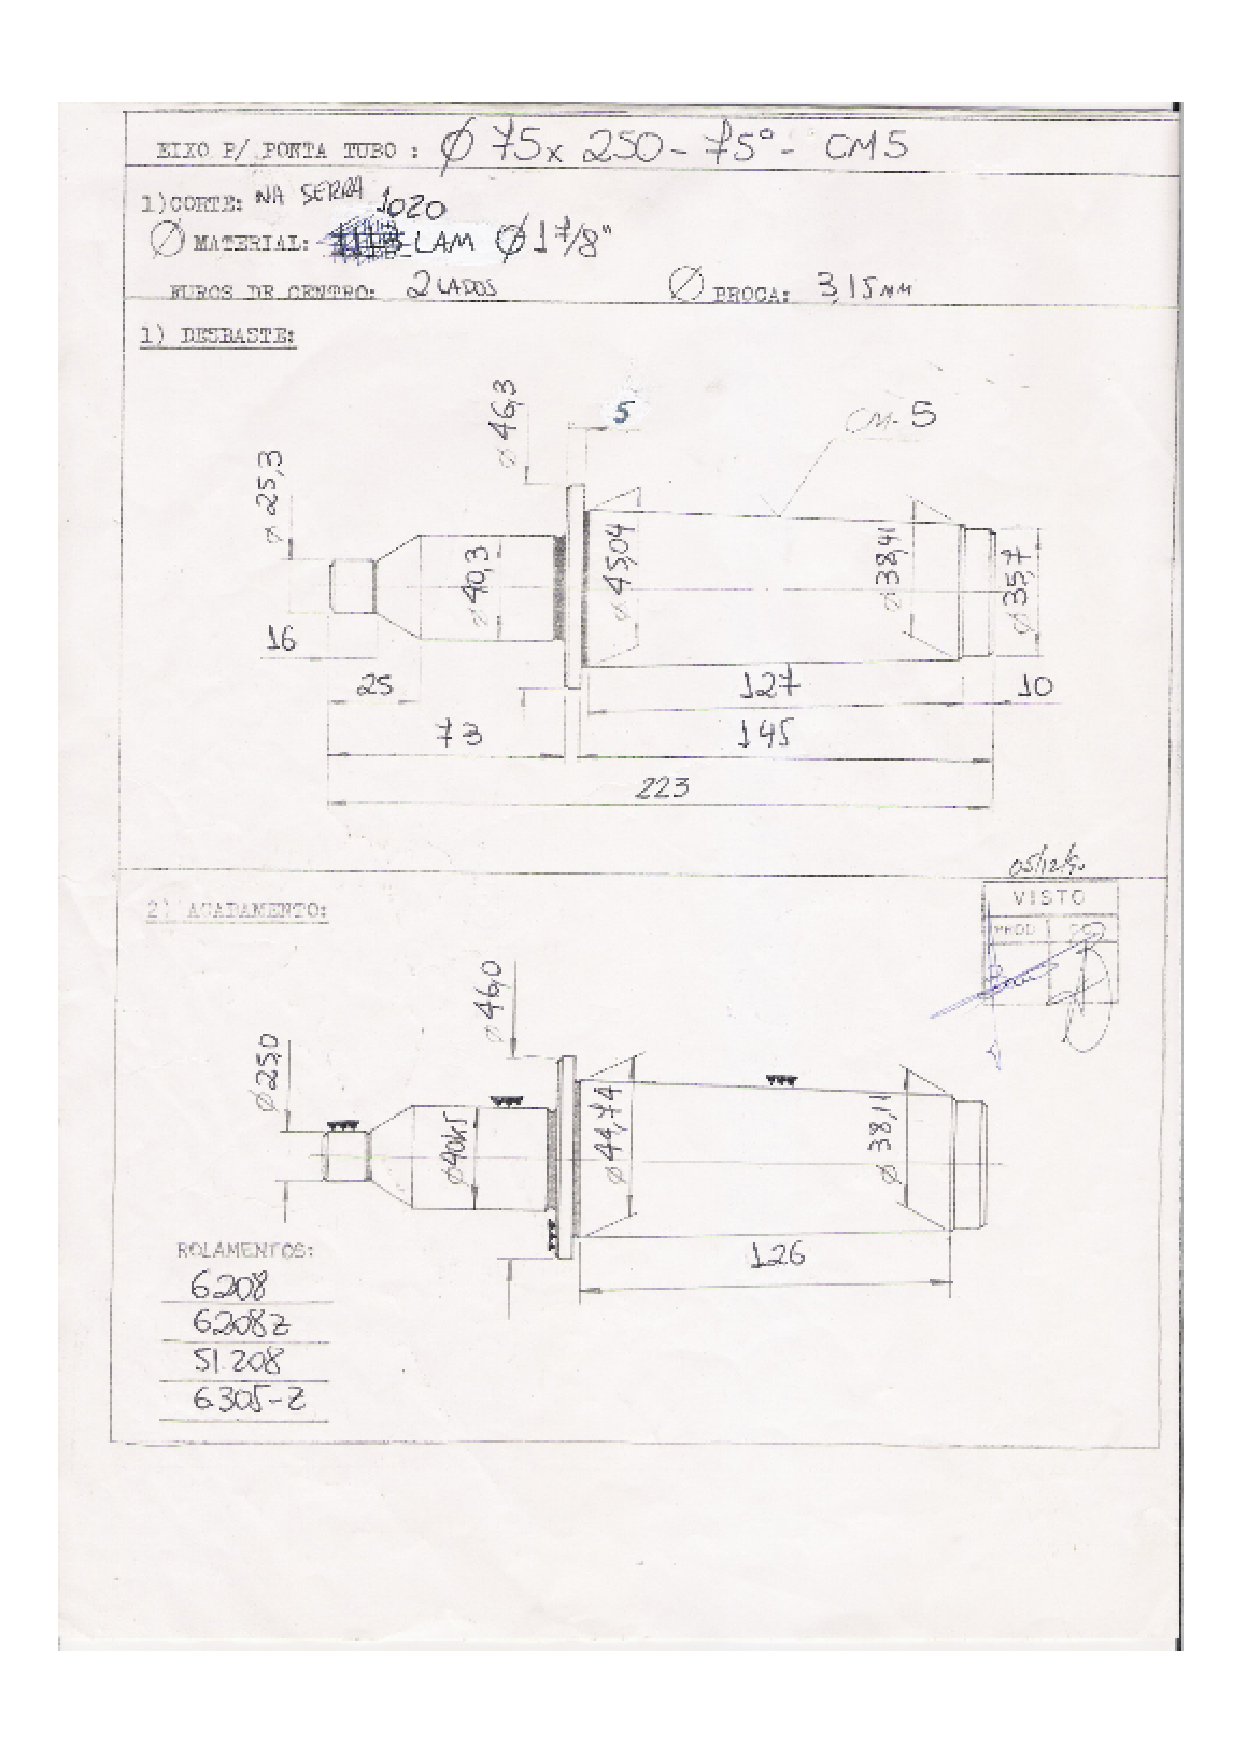 EIXO P/ PORTA TUBO : Ø 75 x 250 - 75° - CM5
1) CORTE: NA SERRA
1020
Ø MATERIAL: LAM Ø 1 7/8"
FUROS DE CENTRO: 2 LADOS Ø BROCA: 3,15 MM
1) DESBASTE:
Ø 46,3
5
CM- 5
Ø 25,3
Ø 40,3
Ø 45,04
Ø 38,41
Ø 35,7
16
25
127
10
73
145
223
05/12/
VISTO
PROD
2) ACABAMENTO:
Ø 46,0
Ø 25,0
Ø 40k5
Ø 44,74
Ø 38,11
126
ROLAMENTOS:
6208
6208Z
51.208
6305-Z